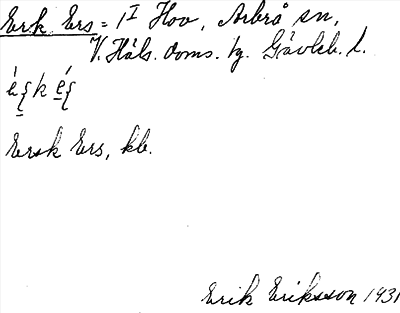 Erk Ers = 1^I Hov, Arbrå sn,
V. Häls. doms. hg. Gävleb. l.
Ersk Ers, kb.
Erik Eriksson 1931